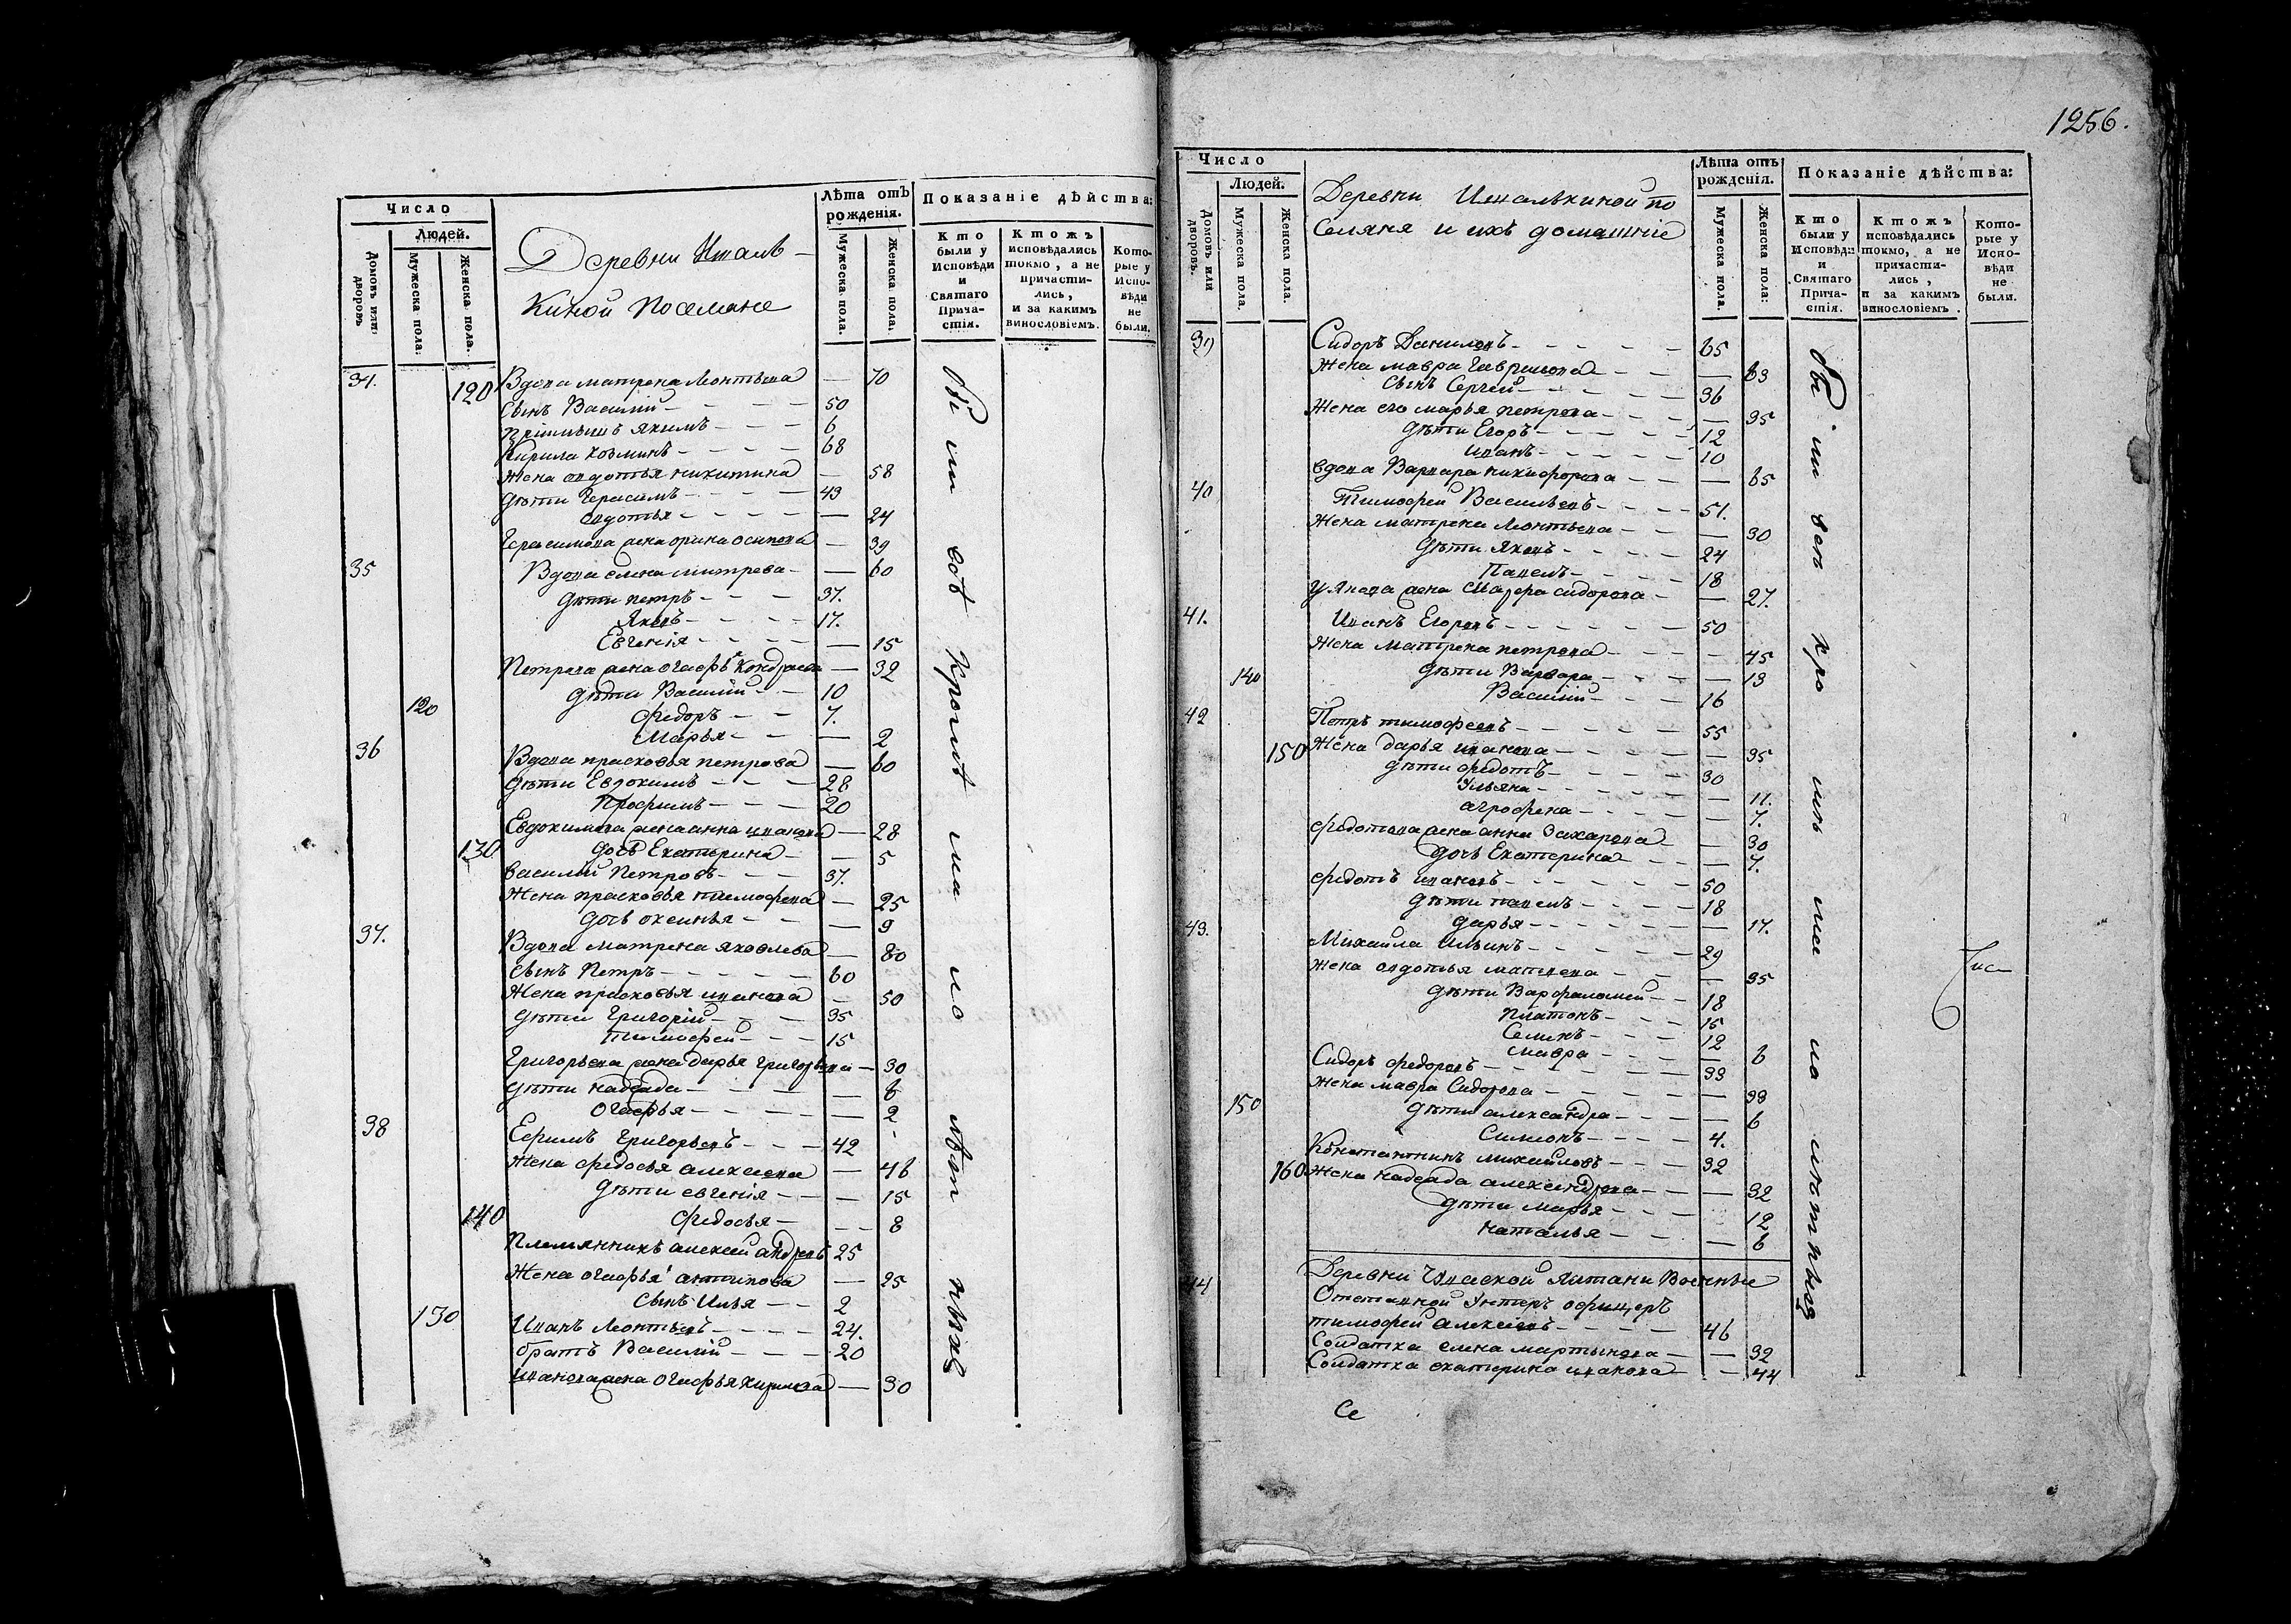 Число
Людей.
Домовъ или дворовъ
Мужеска пола.
Женска пола.
Деревни
киной поселяне
Лѣта отъ рожденія.
Мужеска пола.
Женска пола.
Показаніе дѣйства:
Кто были у Исповѣди и Святаго Причастія.
Ктожъ исповѣдались токмо, а не причастились, и за какимъ винословіемъ.
Которые у Исповѣди не были.
34. 120 Вдова матрена Леонтьева — 70
сынъ Василій 50
якимъ 6
Кирила козминъ 68
жена авдотья никитина — 58
дѣти Герасимъ 43
авдотья — 24
Герасимова жена орина осипова — 39
35 Вдова елена митрева — 60
дѣти петръ 37.
Яковъ 17.
Евгенія — 15
Петрова жена огафья — 32
дѣти Василій 10
120 федоръ 7.
Марья — 2
36 Вдова прасковья петрова — 60
дѣти Евдокимъ 28
Трофимъ 20
Евдокимова жена анна иванова — 28
130 дочь Екатерина — 5
василій Петровъ 37.
жена прасковья тимофеева — 25
дочь оксинья — 9
37. Вдова матрена яковлева — 80
сынъ Петръ 60
жена прасковья иванова — 50
дѣти Григорій 35
тимофей 15
Григорьева жена дарья григорьева — 30
дѣти надежда — 6
огафья — 2
38 Ефимъ Григорьевъ 42
жена федосья алексеева — 46
дѣти евгенія — 15
140 федосья — 8
Племянникъ алексей андреевъ 25
жена огафья антипова — 25
сынъ Илья 2
130 Иванъ Леонтьевъ 24.
братъ Василій 20
иванова жена огафья кирилова — 30
1256.
Число
Людей.
Домовъ или дворовъ.
Мужеска пола.
Женска пола.
Деревни по
селяня и ихъ домашніе
Лѣта отъ рожденія.
Мужеска пола.
Женска пола.
Показаніе дѣйства:
Кто были у Исповѣди и Святаго Причастія.
Ктожъ исповѣдались токмо, а не причастились, и за какимъ винословіемъ.
Которые у Исповѣди не были.
39 Сидоръ Даниловъ 65
жена мавра гаврилова — 63
сынъ Сергей 36
жена его марья петрова — 35
дѣти Егоръ 12
иванъ 10
вдова Варвара никифорова — 65
40 Тимофей Васильевъ 51.
жена матрена Леонтьева — 30
дѣти Яковъ 24
Павелъ 18
у Якова жена сидорова — 27.
41. Иванъ Егоровъ 50
жена матрена петрова — 45
140 дѣти Варвара — 13
Василій 16
42 Петръ тимофеевъ 55
150 жена дарья иванова — 35
дѣти федотъ 30
Ульяна — 11.
агрофена — 7.
федотова жена анна Захарова — 30
дочь Екатерина — 7.
федотъ ивановъ 50
дѣти павелъ 18
дарья — 17.
43. Михайла Ильинъ 29
жена авдотья матвеева — 35
дѣти Варфаламей 18
Платонъ 15
Семинъ 12
мавра — 6
Сидоръ федоровъ 33
жена мавра Сидорова — 33
150 дѣти александра — 6
Симионъ 4.
Константинъ михайловъ 32
160 жена надежда александрова — 32
дѣти марья — 12
наталья — 6
44 Деревни
Отставной Унтеръ офицеръ
тимофей алексеевъ 46
Солдатка елена мартынова — 32
Солдатка екатерина иванова — 44
Се